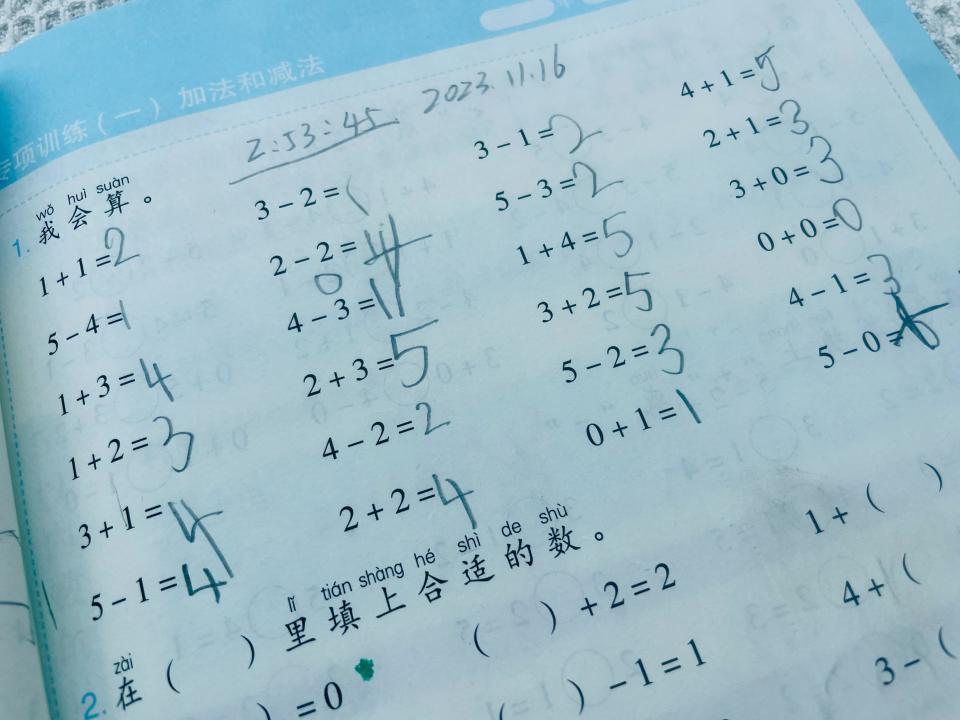 专项训练(一) 加法和减法
2:53:45 2023.11.16
wǒ huì suàn
1. 我会算。
1+1=2
5-4=1
1+3=4
1+2=3
3+1=4
5-1=4
3-2=1
2-2=
0
4-3=1
2+3=5
4-2=2
2+2=4
3-1=2
5-3=2
1+4=5
3+2=5
5-2=3
0+1=1
4+1=5
2+1=3
3+0=3
0+0=0
4-1=3
5-0=
zài lǐ tián shàng hé shì de shù
2. 在( )里填上合适的数。
)=0
( )+2=2
( )-1=1
1+( )
4+(
3-(